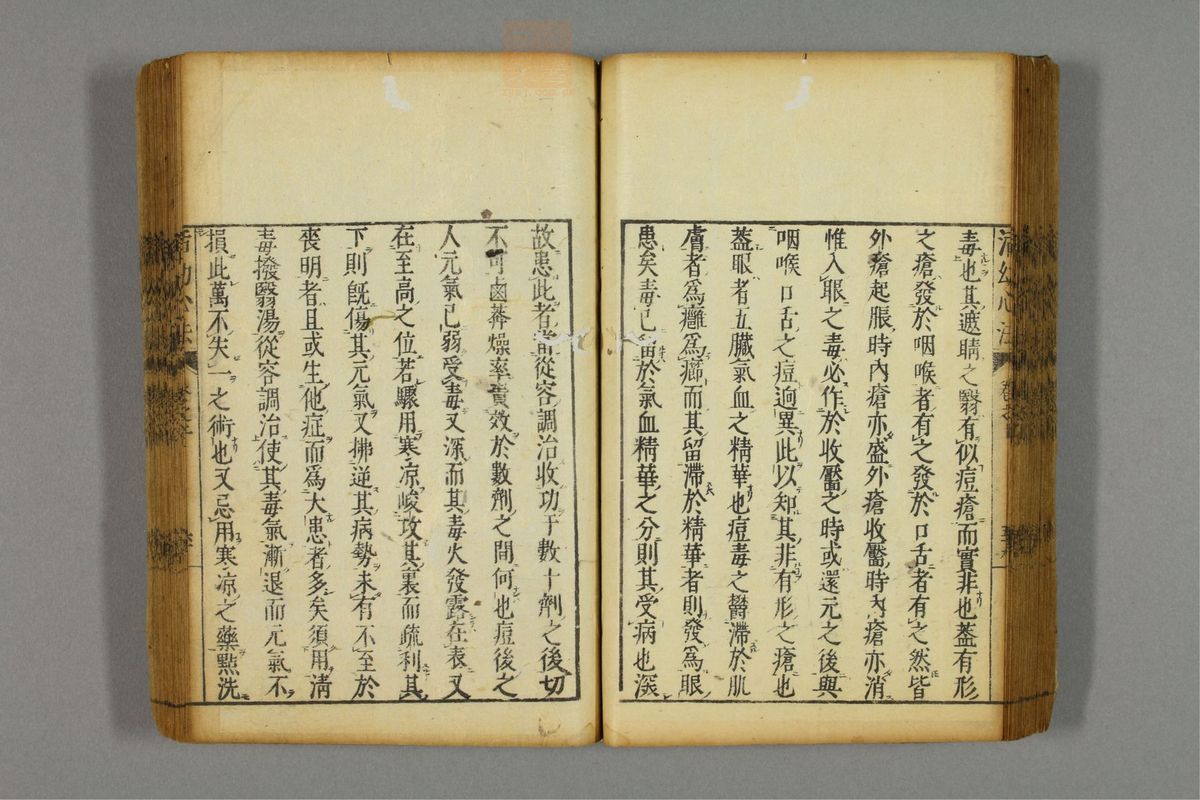 毒也其遮睛之翳有似痘瘡而實非也蓋有形
之瘡發於咽喉者有之發於口舌者有之然皆
外瘡起脹時內瘡亦盛外瘡收靨時內瘡亦消
惟入眼之毒必作於收靨之時或還元之後與
咽喉口舌之痘逈異此以知其非有形之瘡也
蓋眼者五臟氣血之精華也痘毒之鬱滯於肌
膚者爲癰爲癤而其留滯於精華者則發爲眼
患矣毒已留於氣血精華之分則其受病也深
故患此者當從容調治收功于數十劑之後切
不可鹵莽燥率責效於數劑之間何也痘後之
人元氣已弱受毒又深而其毒火發露在表又
在至高之位若驟用寒凉峻攻其裏而疏利其
下則旣傷其元氣又拂逆其病勢未有不至於
喪明者且或生他症而爲大患者多矣須用淸
毒撥翳湯從容調治使其毒氣漸退而元氣不
損此萬不失一之術也又忌用寒凉之藥點洗
活幼心法